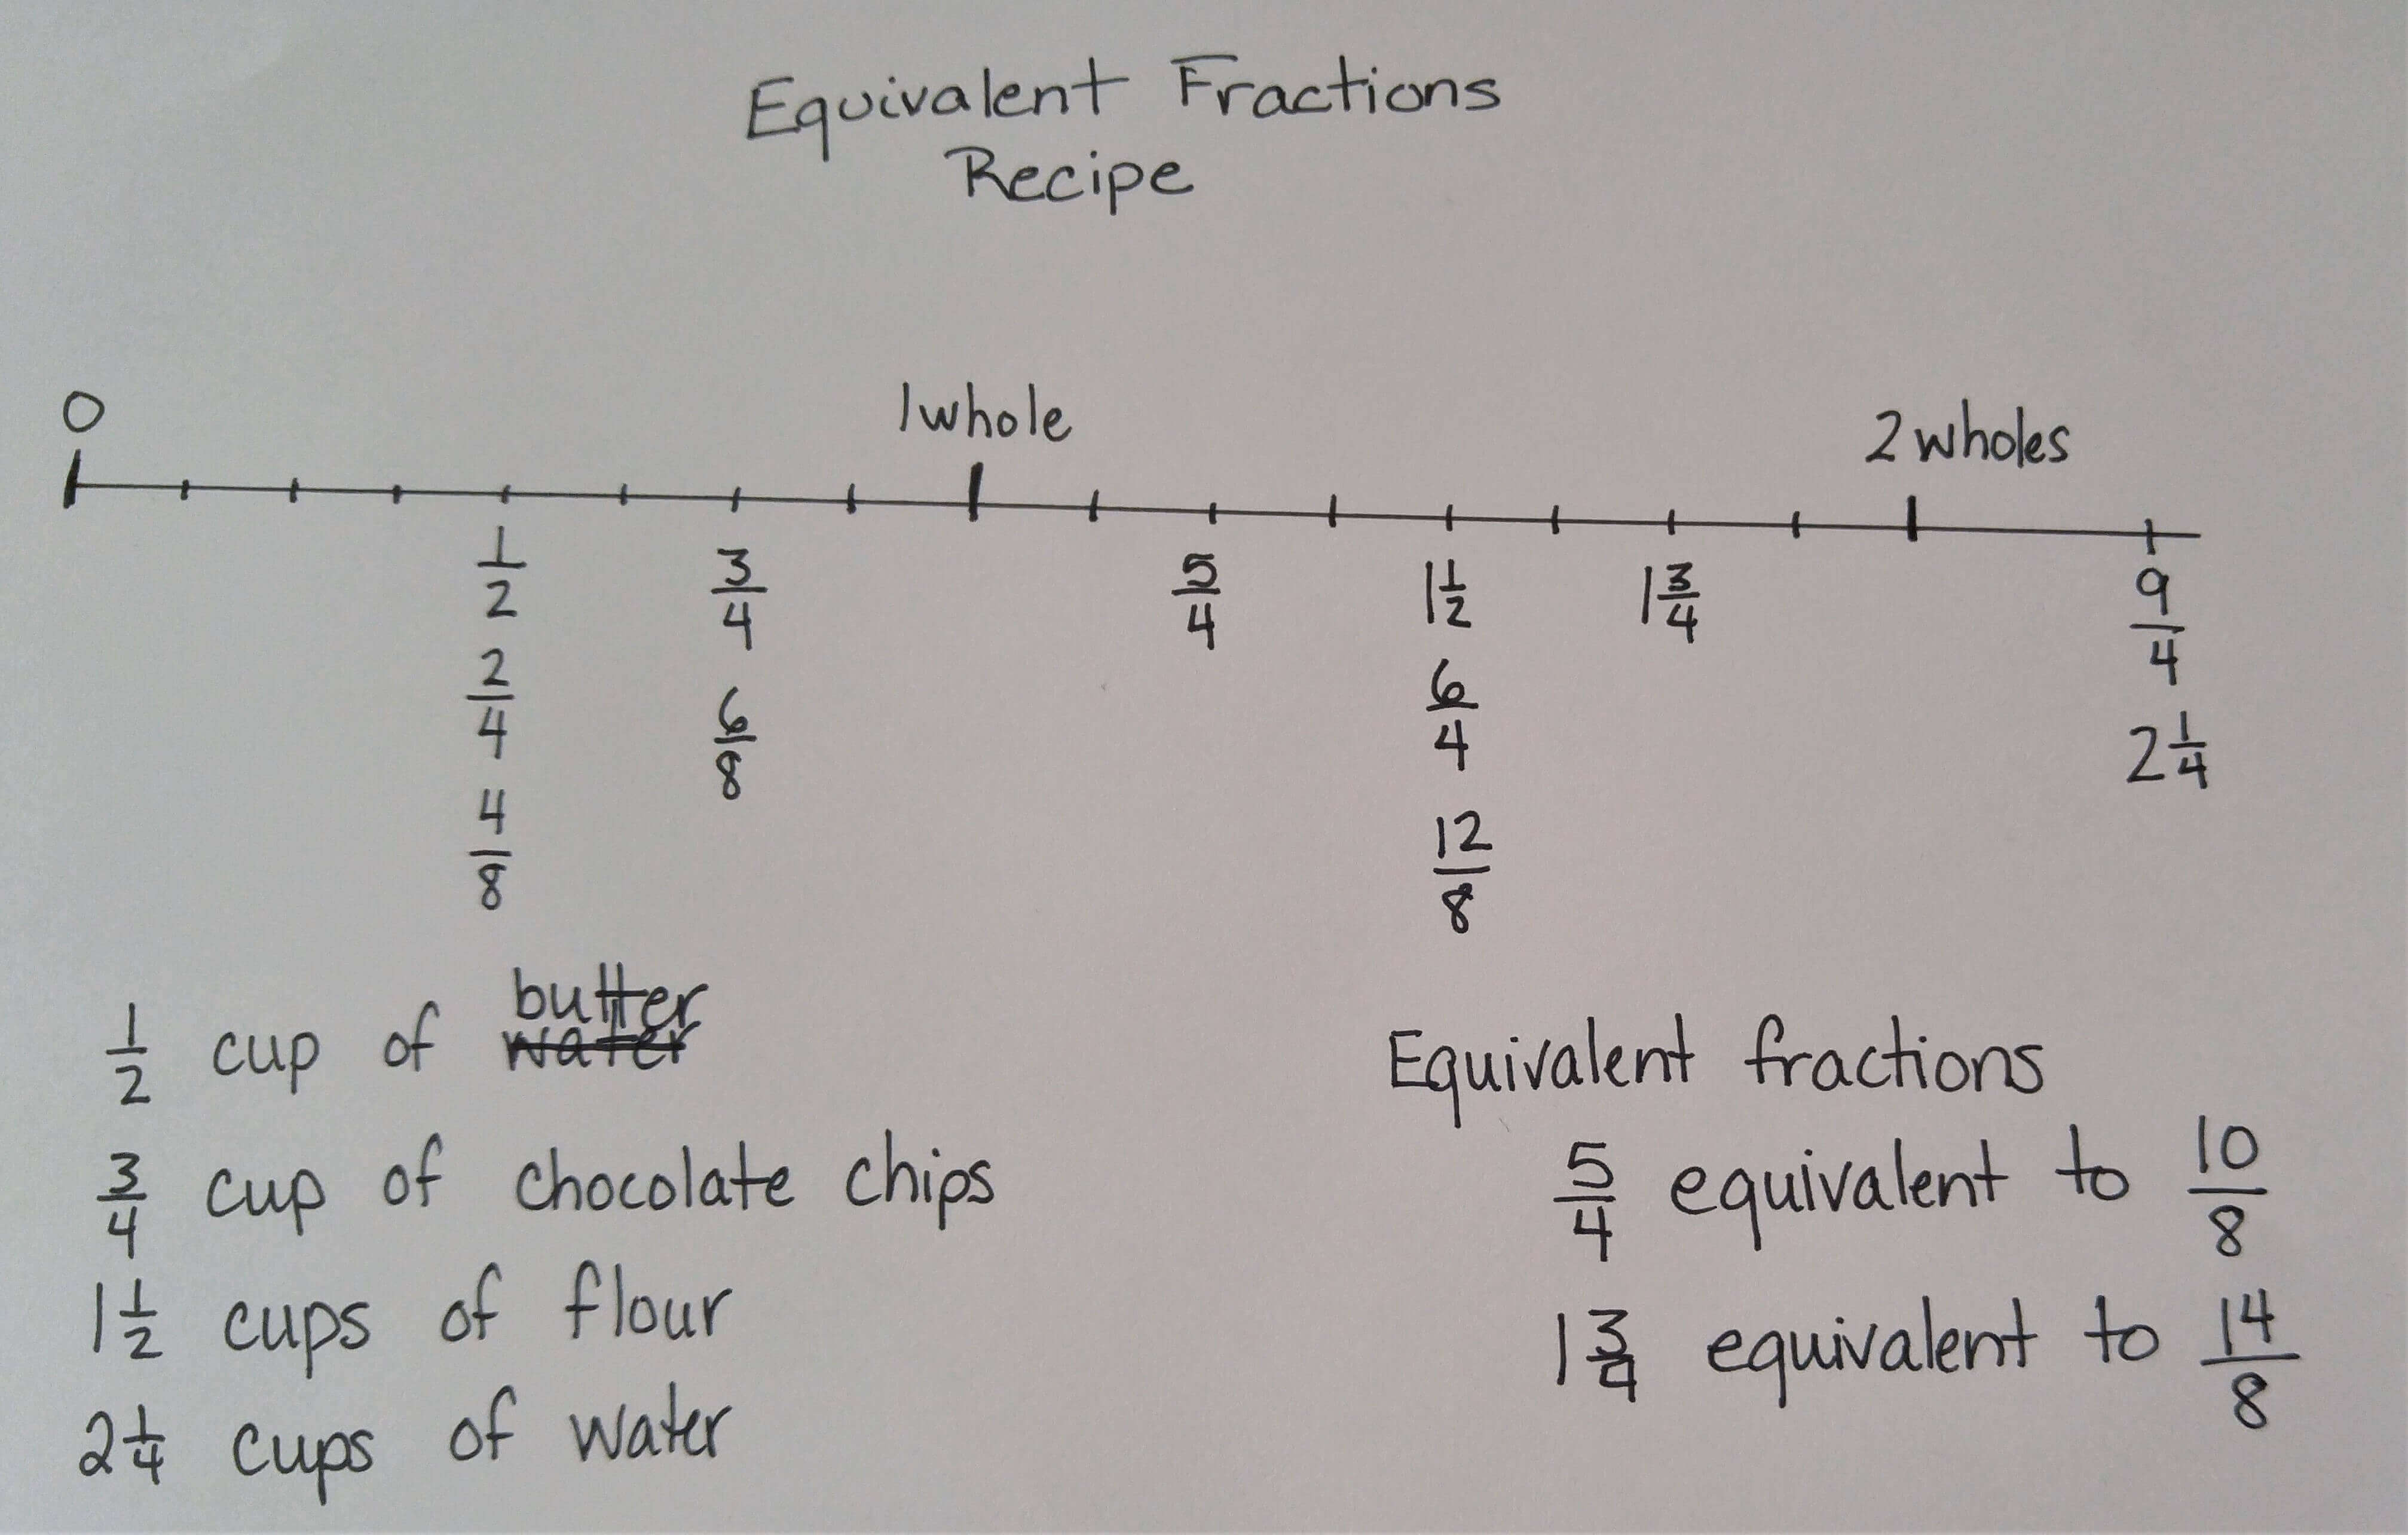 Equivalent Fractions
Recipe
0 1 whole 2 wholes
1/2 3/4 5/4 1 1/2 1 3/4 9/4
2/4 6/8 6/4 2 1/4
4/8 12/8
butter
1/2 cup of water
3/4 cup of chocolate chips
1 1/2 cups of flour
2 1/4 cups of water
Equivalent fractions
5/4 equivalent to 10/8
1 3/4 equivalent to 14/8